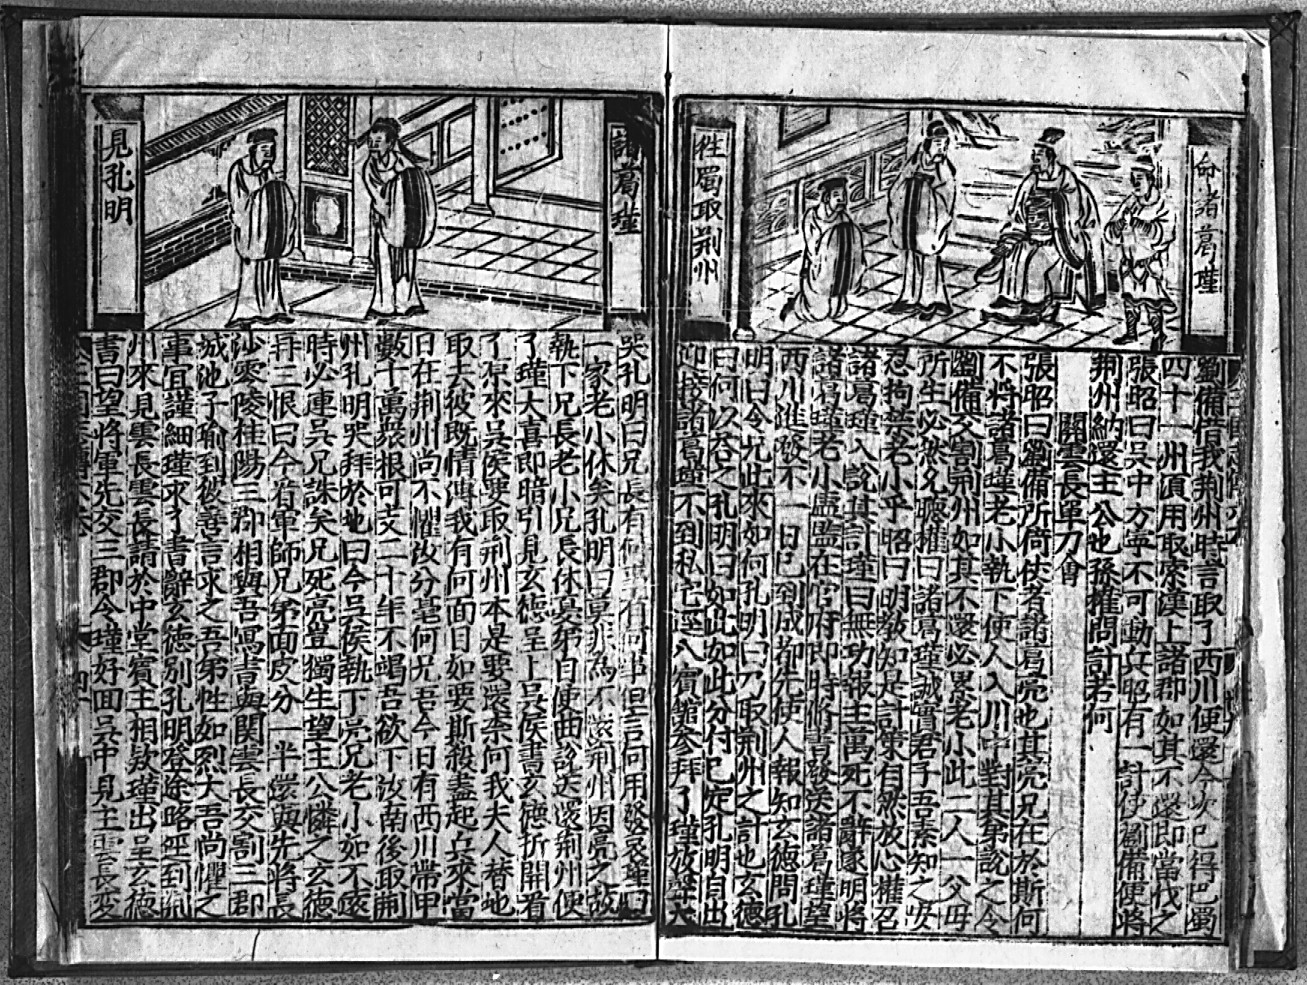 命諸葛瑾
往蜀取荆州
劉備借我荆州時言取了西川便還今次已得巴蜀
四十一州須用取索漢上諸郡如其不還即當伐之
張昭曰吳中方寧不可動兵昭有一計使劉備便將
荆州納還主公也孫權問計若何
關雲長單刀會
張昭曰劉備所倚仗者諸葛亮也其亮兄在於斯何
不將諸葛瑾老小執下使人入川中對其弟說之令
劉備交割荆州如其不還必累老小此二人一父母
所生必然允聽權曰諸葛瑾誠實君子吾素知之安
忍拘禁老小乎昭曰明敎知是計策自然放心權召
諸葛瑾入說其計瑾曰無功報主萬死不辭遂明將
諸葛瑾老小盡監在官府即時修書發送諸葛瑾望
西川進發不一日已到成都先使人報知玄德問孔
明曰令兄此來如何孔明曰乃取荆州之計也玄德
曰何以答之孔明曰如此如此分付已定孔明自出
迎接諸葛瑾不到私宅逕入賓館參拜了瑾放聲大
諸葛瑾
見孔明
哭孔明曰兄長有何事但言何用發哀瑾曰
一家老小休矣孔明曰莫非為不還荆州因亮之故
執下兄長老小兄長休憂弟自使曲說送還荆州便
了瑾大喜即暗引見玄德呈上吳侯書玄德折開看
了原來吳侯要取荆州本是要還柰何我夫人替地
取去彼既情薄我有何面目如要厮殺盡起兵來當
日在荆州尚不懼汝分毫何况吾今日有西川帶甲
數十萬衆粮可支二十年不竭吾欲下汝南後取荆
州孔明哭拜於地曰今吳侯執下亮兄老小如不還
時必連吳兄誅矣兄死亮豈獨生望主公憐之玄德
再三恨曰今看軍師兄弟面皮分一半還與先將長
沙零陵桂陽三郡相與吾寫書與関雲長交割三郡
城池子瑜到彼善言求之吾弟性如烈火吾尚懼之
事宜謹細瑾求了書辭玄德別孔明登途路逕到荆
州來見雲長雲長請於中堂賓主相敘瑾出呈玄德
書曰望將軍先交三郡令瑾好回吳中見主雲長変